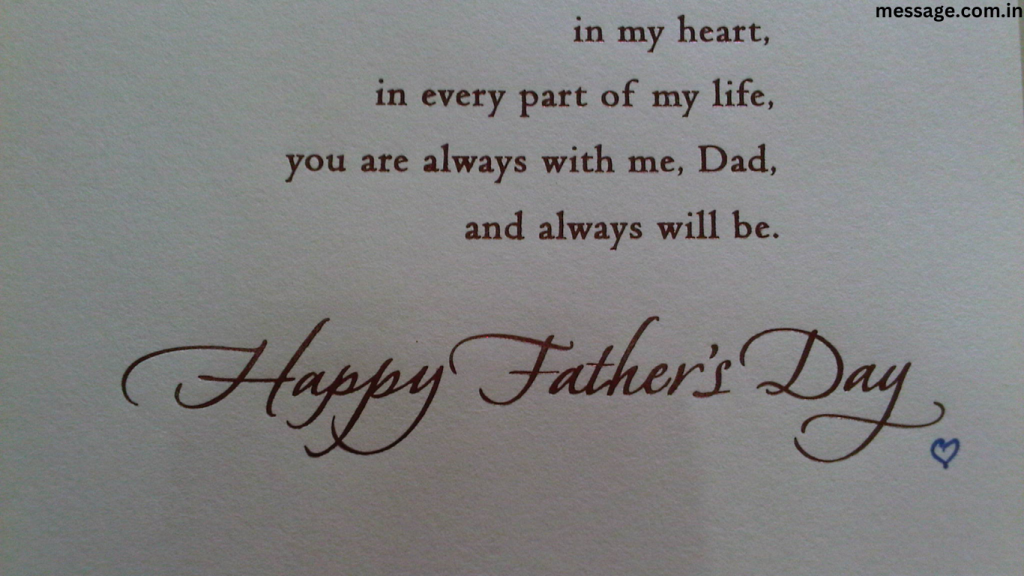 message.com.in
in my heart,
in every part of my life,
you are always with me, Dad,
and always will be.
Happy Father's Day